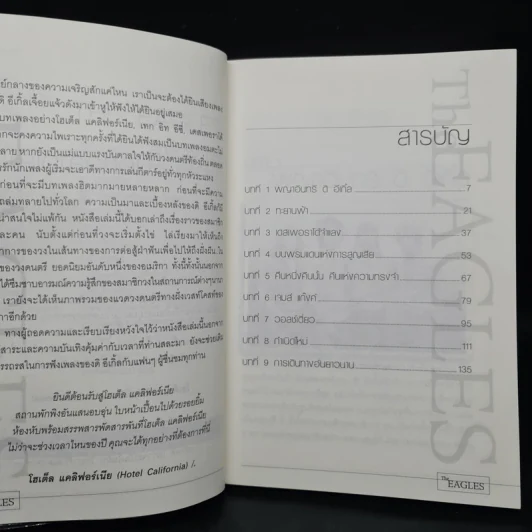 ย์กลางของความเจริญสักแค่ไหน เราเป็นจะต้องได้ยินเสียงเพลง
ดิ อีเกิ้ลเจื้อยแจ้วดังมาเข้าหูให้ฟังให้ได้ยินอยู่เสมอ
บทเพลงอย่างโฮเต็ล แคลิฟอร์เนีย, เทก อิท อีซี่, เดสเพอราโด้
กจะคงความไพเราะทุกครั้งที่ได้ยินได้ฟังสมเป็นบทเพลงอมตะ
ลาย หากยังเป็นแม่แบบแรงบันดาลใจให้กับวงดนตรีท้องถิ่น ตลอด
รักนักเพลงผู้เริ่มจะเอาดีทางการเล่นกีตาร์อยู่ทุกหัวระแหง
ก่อนที่จะมีบทเพลงฮิตมากมายหลายหลาก ก่อนที่จะมีความ
ถล่มทลายไปทั่วโลก ความเป็นมาและเบื้องหลังของดิ อีเกิ้ล
น่าสนใจไม่แพ้กัน หนังสือเล่มนี้ได้บอกเล่าถึงเรื่องราวของสมาชิก
ละคน นับตั้งแต่ก่อนที่วงจะเริ่มตั้งไข่ ไล่เรียงมาให้เห็นถึง
าการของวงในเส้นทางของการต่อสู้ฝ่าฟันเพื่อไปให้ถึงฝั่งฝัน
ของวงดนตรี ยอดนิยมอันดับหนึ่งของอเมริกา ทั้งนี้ทั้งนั้นนอกจาก
ได้ซึมซาบอารมณ์ความรู้สึกของสมาชิกวงในสถานการณ์ต่างๆ
เรายังจะได้เห็นภาพรวมของแวดวงดนตรีทางฝั่งเวสท์โคสท์ของ
กาอีกด้วย
ทางผู้ถอดความและเรียบเรียงหวังใจไว้ว่าหนังสือเล่มนี้นอกจาก
สาระและความบันเทิงคุ้มค่ากับเวลาที่ท่านสละมา ยังจะช่วยเติม
รรถรสในการฟังเพลงของดิ อีเกิ้ลกับแฟนๆ ผู้ชื่นชมทุกท่าน
ยินดีต้อนรับสู่โฮเต็ล แคลิฟอร์เนีย
สถานพักพิงอันแสนอบอุ่น ใบหน้าเปื้อนไปด้วยรอยยิ้ม
ห้องหับพร้อมสรรพสารพัดสารพันที่โฮเต็ล แคลิฟอร์เนีย
ไม่ว่าจะช่วงเวลาไหนของปี คุณจะได้ทุกอย่างที่ต้องการที่นี่
โฮเต็ล แคลิฟอร์เนีย (Hotel California) /.
GLES
The EAGLES
สารบัญ
บทที่ 1 พญาอินทรี ดิ อีเกิ้ล 7
บทที่ 2 ทะยานฟ้า 21
บทที่ 3 เดสเพอราโด้กำแลง 37
บทที่ 4 บนพรมแดนแห่งการสูญเสีย 53
บทที่ 5 คืนหนึ่งคืนนั้น คืนแห่งความทรงจำ 67
บทที่ 6 เจมส์ แก๊งค์ 79
บทที่ 7 วอลช์เดี่ยว 95
บทที่ 8 กำเนิดใหม่ 111
บทที่ 9 การเดินทางอันยาวนาน 135
The EAGLES